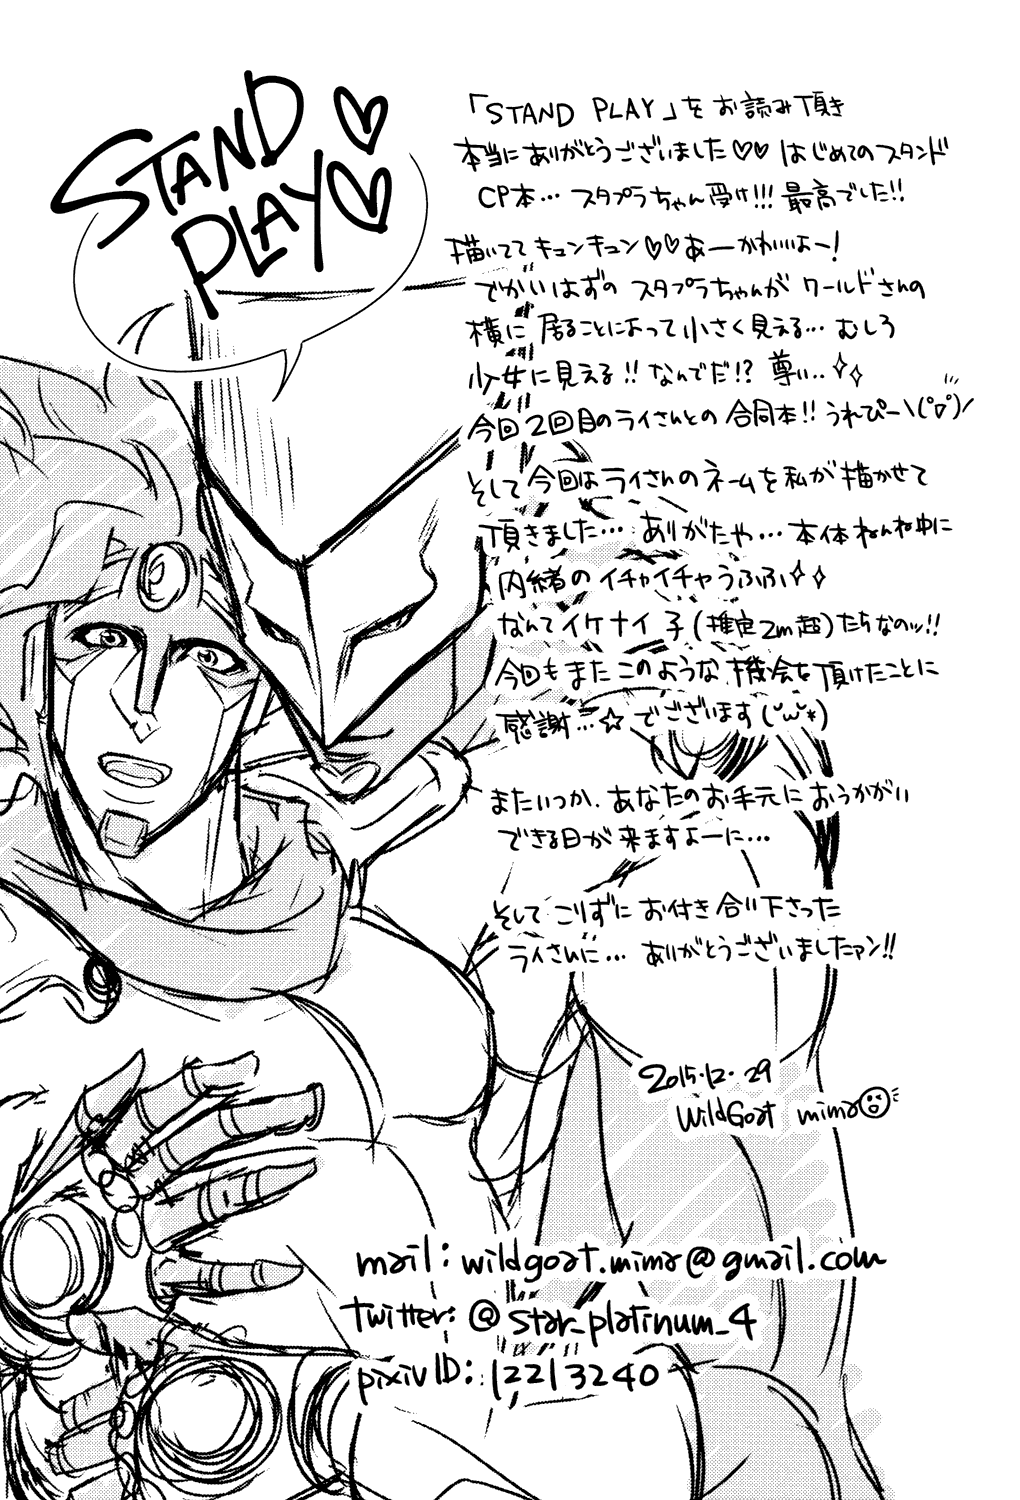 STAND
PLAY♡♡
「STAND PLAY」をお読み頂き
本当にありがとうございました♡♡ はじめてのスタンド
CP本… スタプラちゃん受け!!! 最高でした!!
描いてて キュンキュン♡♡あーかわいいよー!
でかいはずの スタプラちゃんが ワールドさんの
横に 居ることによって小さく見える… むしろ
少女に見える!! なんでだ!? 尊い..✧✧
今回2回目のライさんとの 合同本!! うれぴー\(°▽°)/
そして今回はライさんのネームを私が描かせて
頂きました… ありがたや… 本体ねんね中に
内緒の イチャイチャうふふ✧✧
なんてイケナイ子(推定2m超)たちなのッ!!
今回もまたこのような 機会を頂けたことに
感謝…☆でございます(˘ω˘*)
またいつか、あなたのお手元におうかがい
できる日が来ますよーに…
そしてこりずにお付き合い下さった
ライさんに… ありがとうございましたァン!!
2015.12.29
WildGoat mima
mail: wildgoat.mima@gmail.com
twitter: @star_platinum_4
pixivID: 12213240